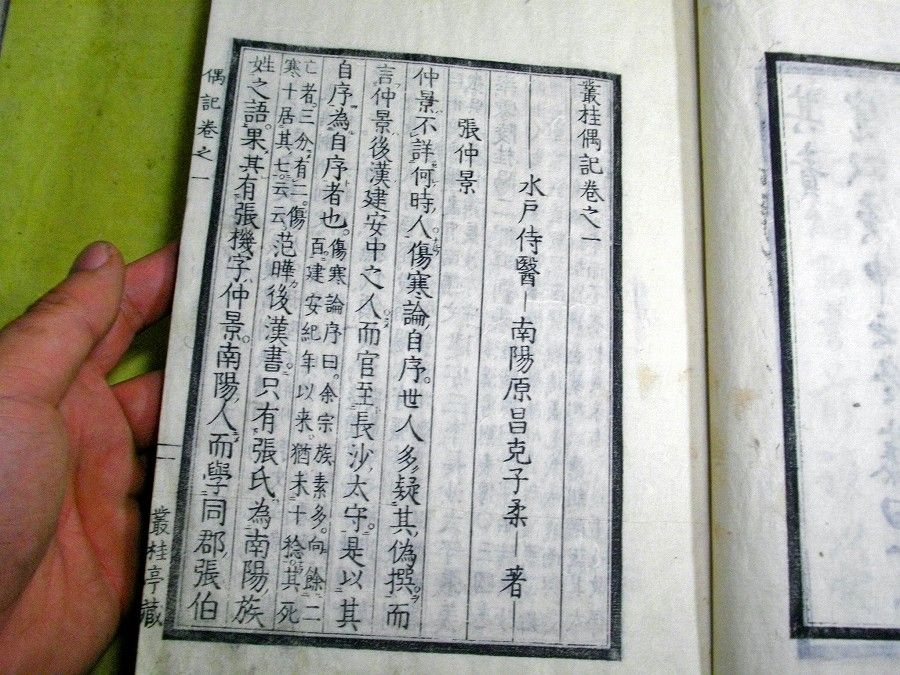 叢桂偶記卷之一
水戸侍醫 南陽原昌克子柔 著
張仲景
仲景不詳何時人傷寒論自序。世人多疑其偽撰而
言仲景後漢建安中之人而官至長沙太守。是以其
自序為自序者也。傷寒論序曰。余宗族素多。向餘二
百。建安紀年以來。猶未十稔。其死
亡者。三分有二。傷
寒十居其七。云云。范曄後漢書只有張氏為南陽族
姓之語。果其有張機字仲景。南陽人而學同郡張伯
偶記卷之一
一
叢桂亭藏